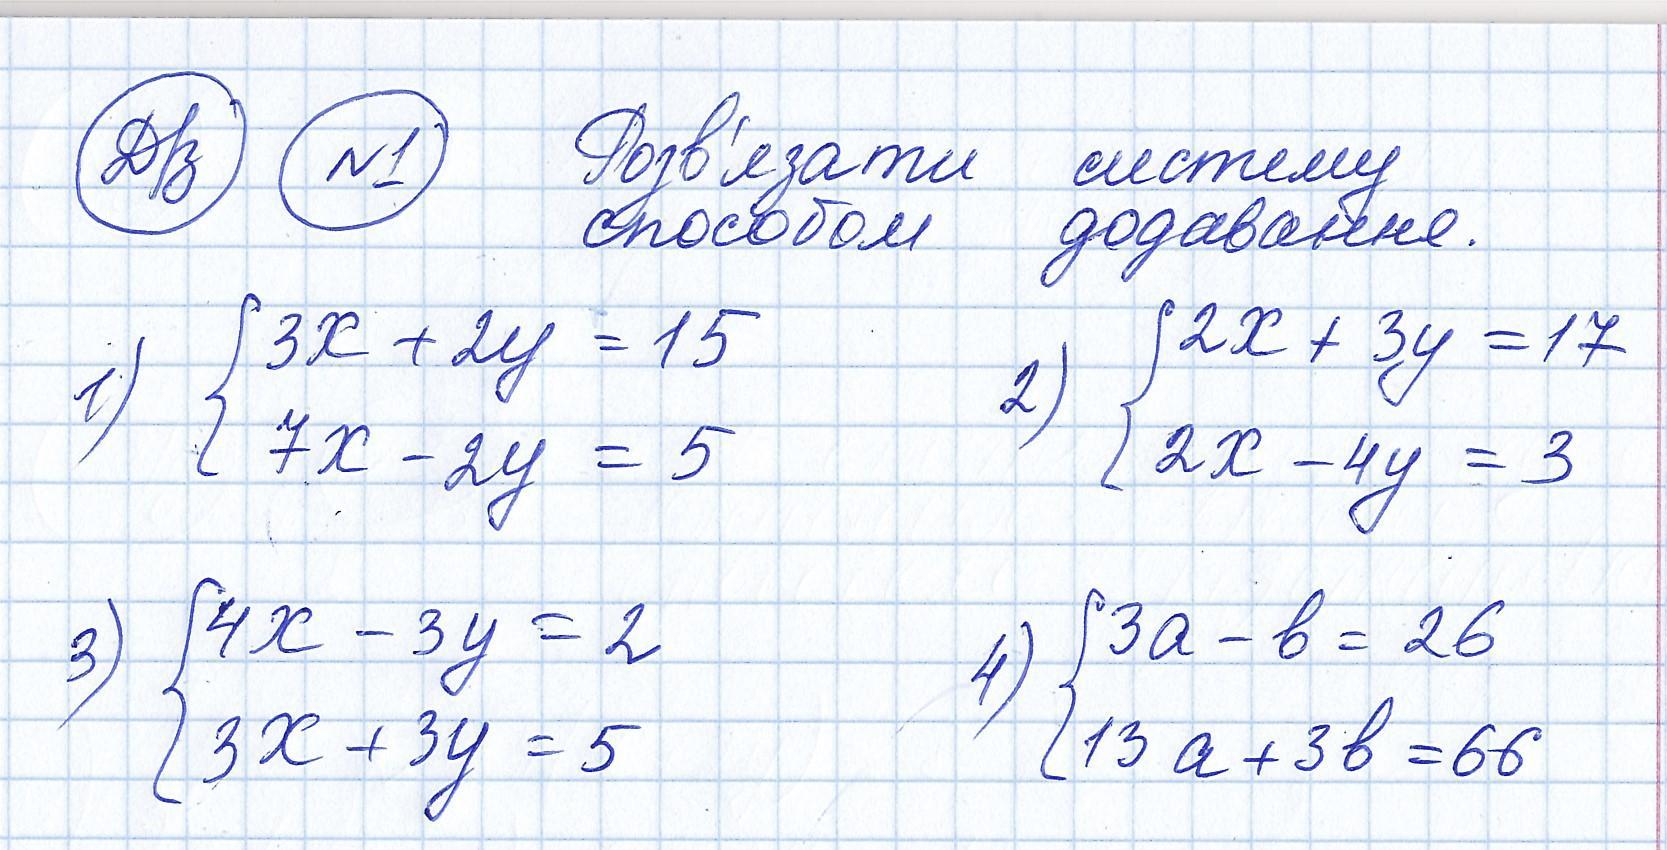 Д/з №1 Розв'язати систему
способом додавання.
1) { 3x + 2y = 15
7x - 2y = 5
2) { 2x + 3y = 17
2x - 4y = 3
3) { 4x - 3y = 2
3x + 3y = 5
4) { 3a - b = 26
13a + 3b = 66